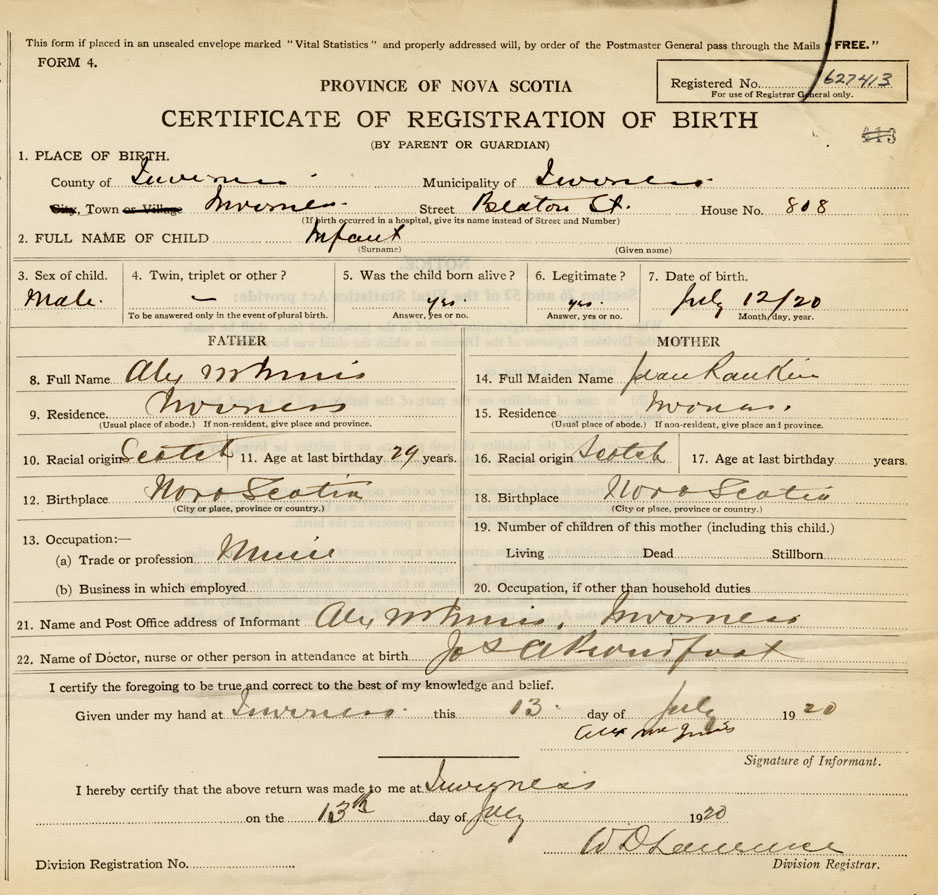 This form if placed in an unsealed envelope marked "Vital Statistics" and properly addressed will, by order of the Postmaster General pass through the Mails "FREE."
FORM 4.
PROVINCE OF NOVA SCOTIA
Registered No. 627413
For use of Registrar General only.
CERTIFICATE OF REGISTRATION OF BIRTH
(BY PARENT OR GUARDIAN)
413
1. PLACE OF BIRTH.
County of Inverness Municipality of Inverness
City, Town or Village Inverness Street Beaton St. House No. 808
(If birth occurred in a hospital, give its name instead of Street and Number)
2. FULL NAME OF CHILD Infant
(Surname) (Given name)
3. Sex of child. 4. Twin, triplet or other? 5. Was the child born alive? 6. Legitimate? 7. Date of birth.
Male. — yes. yes. July 12/20
To be answered only in the event of plural birth. Answer, yes or no. Answer, yes or no. Month, day, year.
FATHER MOTHER
8. Full Name Alex 14. Full Maiden Name Jean Rankin
9. Residence. Inverness 15. Residence Inverness.
(Usual place of abode.) If non-resident, give place and province. (Usual place of abode.) If non-resident, give place and province.
10. Racial origin Scotch 11. Age at last birthday 29 years. 16. Racial origin Scotch 17. Age at last birthday years.
12. Birthplace Nova Scotia 18. Birthplace Nova Scotia
(City or place, province or country.) (City or place, province or country.)
19. Number of children of this mother (including this child.)
13. Occupation:—
(a) Trade or profession Living Dead Stillborn
(b) Business in which employed 20. Occupation, if other than household duties
21. Name and Post Office address of Informant Alex Inverness
22. Name of Doctor, nurse or other person in attendance at birth Proudfoot
I certify the foregoing to be true and correct to the best of my knowledge and belief.
Given under my hand at Inverness this 13 day of July 1920
Alex
Signature of Informant.
I hereby certify that the above return was made to me at Inverness
on the 13th day of July 1920
W D Lawrence
Division Registration No. Division Registrar.